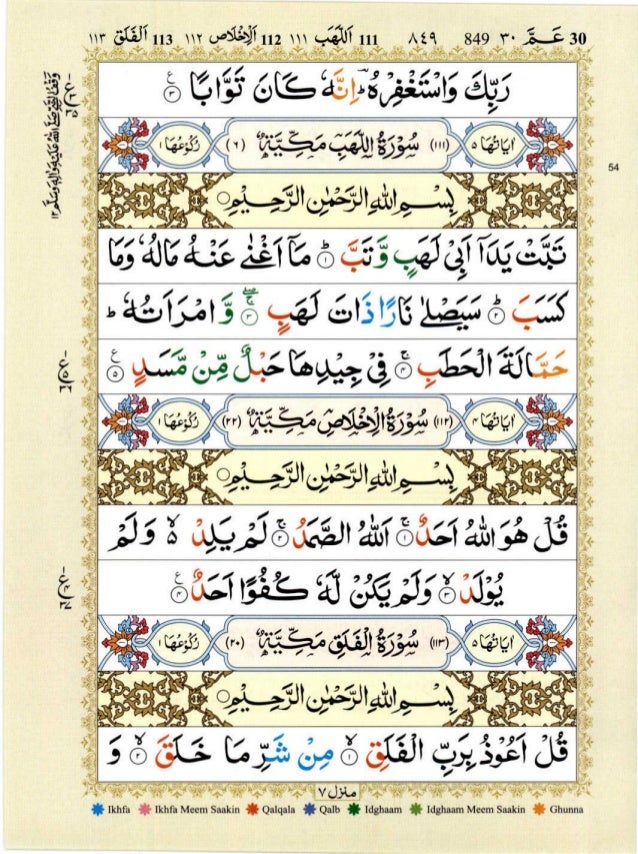 30 عَـمَّ ٣٠ 849 ٨٤٩ 111 اَللَّهَب ١١١ 112 اَلْاِخْلَاص ١١٢ 113 اَلْفَلَق ١١٣
رَبِّكَ وَاسْتَغْفِرْهُ ؕ اِنَّهٗ كَانَ تَوَّابًا ۝٣
اٰيَاتُهَا ٥ (١١١) سُوْرَةُ اللَّهَبِ مَكِّيَّةٌ (٦) رُكُوْعُهَا ١
بِسْمِ اللّٰهِ الرَّحْمٰنِ الرَّحِيْمِ
54
تَبَّتْ يَدَاۤ اَبِيْ لَهَبٍ وَّتَبَّ ؕ۝١ مَاۤ اَغْنٰى عَنْهُ مَالُهٗ وَمَا
كَسَبَ ؕ۝٢ سَيَصْلٰى نَارًا ذَاتَ لَهَبٍ ۝٣ وَّ امْرَاَتُهٗ ؕ
حَمَّالَةَ الْحَطَبِ ۝٤ فِيْ جِيْدِهَا حَبْلٌ مِّنْ مَّسَدٍ ۝٥
اٰيَاتُهَا ٤ (١١٢) سُوْرَةُ الْاِخْلَاصِ مَكِّيَّةٌ (٢٢) رُكُوْعُهَا ١
بِسْمِ اللّٰهِ الرَّحْمٰنِ الرَّحِيْمِ
قُلْ هُوَ اللّٰهُ اَحَدٌ ۝١ اَللّٰهُ الصَّمَدُ ۝٢ لَمْ يَلِدْ ۙ۬ وَلَمْ
يُوْلَدْ ۙ۝٣ وَلَمْ يَكُنْ لَّهٗ كُفُوًا اَحَدٌ ۝٤
اٰيَاتُهَا ٥ (١١٣) سُوْرَةُ الْفَلَقِ مَكِّيَّةٌ (٢٠) رُكُوْعُهَا ١
بِسْمِ اللّٰهِ الرَّحْمٰنِ الرَّحِيْمِ
قُلْ اَعُوْذُ بِرَبِّ الْفَلَقِ ۙ۝١ مِنْ شَرِّ مَا خَلَقَ ۙ۝٢ وَ
منزل ٧
Ikhfa Ikhfa Meem Saakin Qalqala Qalb Idghaam Idghaam Meem Saakin Ghunna